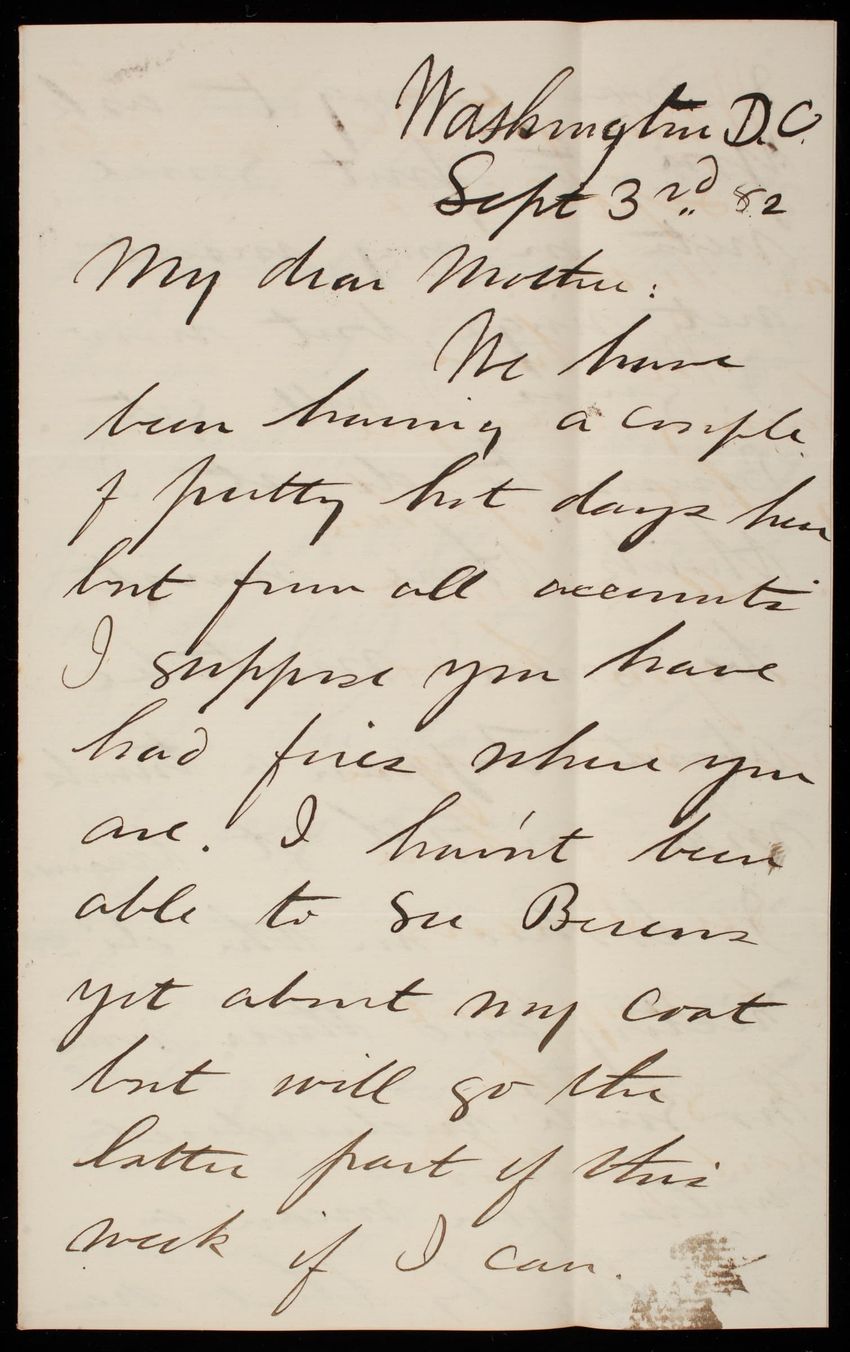 Washington D.C.
Sept 3rd. 82
My dear Mother:
We have
been having a couple
of pretty hot days here
but from all accounts
I suppose you have
had fires where you
are. I hav'nt been
able to see
yet about my coat
but will go the
latter part of this
week if I can.